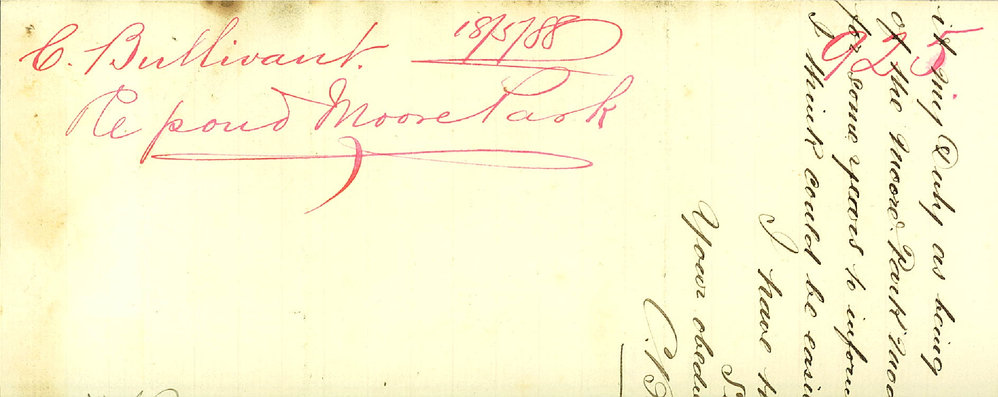 C. Bullivant. 18/5/88
Re pond Moore Park
925
it my Duty as being
of the Moore Park
for some years to inform
I think could be easi
I have th
Your obedi